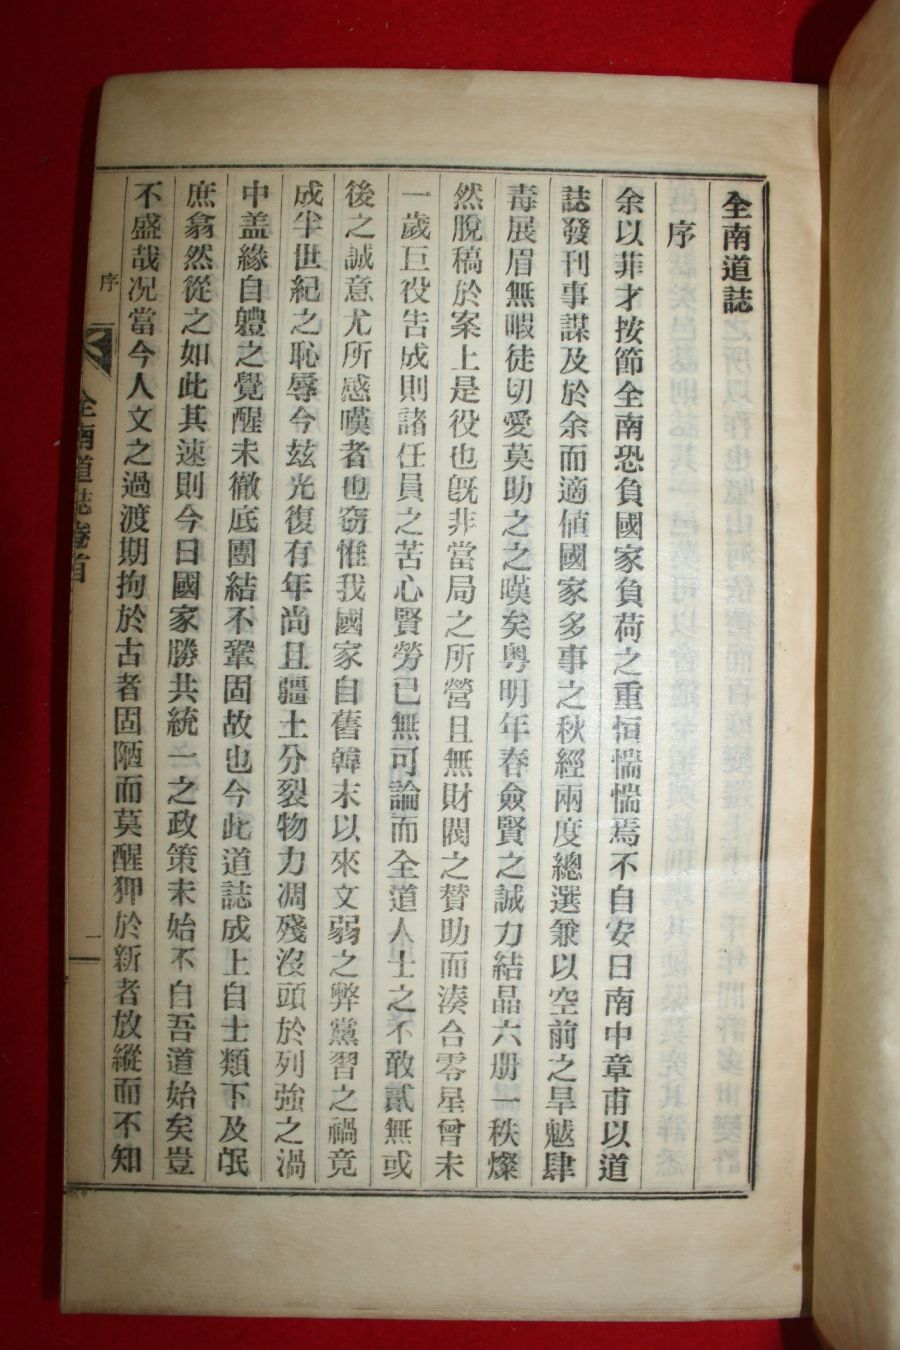 全南道誌
序
余以菲才按節全南恐負國家負荷之重恒惴惴焉不自安日南中章甫以道
誌發刊事謀及於余而適値國家多事之秋經兩度總選兼以空前之旱魃肆
毒展眉無暇徒切愛莫助之之嘆矣粤明年春僉賢之誠力結晶六册一秩燦
然脫稿於案上是役也旣非當局之所營且無財閥之賛助而湊合零星曾未
一歲巨役告成則諸任員之苦心賢勞已無可論而全道人士之不敢貳無或
後之誠意尤所感嘆者也窃惟我國家自舊韓末以來文弱之弊黨習之禍竟
成半世紀之恥辱今玆光復有年尚且疆土分裂物力凋殘沒頭於列強之渦
中盖緣自軆之覺醒未徹底團結不鞏固故也今此道誌成上自士類下及氓
庶翕然從之如此其速則今日國家勝共統一之政策未始不自吾道始矣豈
不盛哉况當今人文之過渡期拘於古者固陋而莫醒狎於新者放縱而不知
序
全南道誌卷首
一